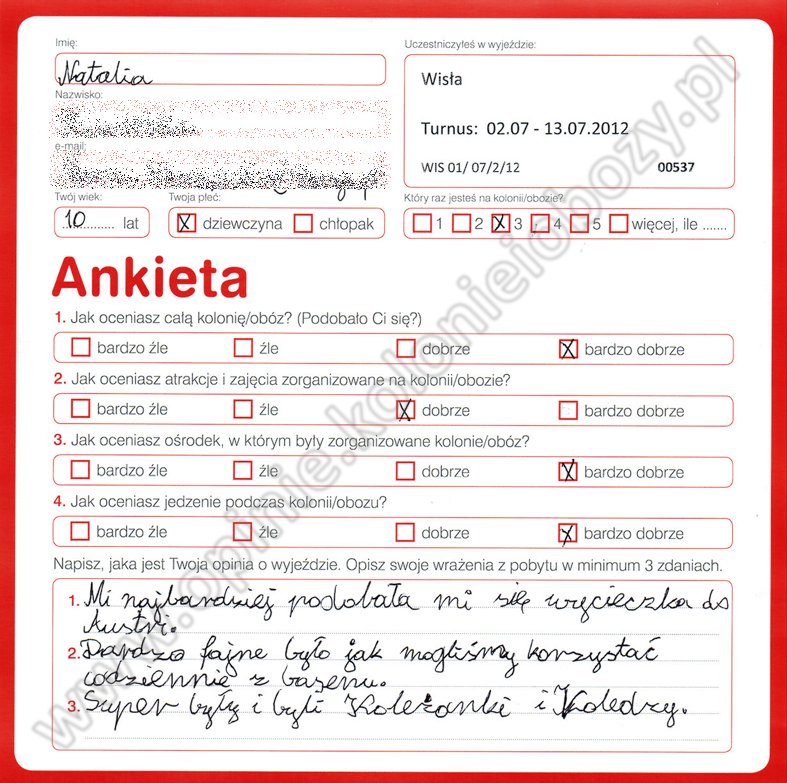 Imię:
Natalia
Nazwisko:
e-mail:
Twój wiek:
10 lat
Twoja płeć:
X dziewczyna chłopak
Uczestniczyłeś w wyjeździe:
Wisła
Turnus: 02.07 - 13.07.2012
WIS 01/ 07/2/12 00537
Który raz jesteś na kolonii/obozie?
1 2 X 3 4 5 więcej, ile .......
Ankieta
1. Jak oceniasz całą kolonię/obóz? (Podobało Ci się?)
bardzo źle źle dobrze X bardzo dobrze
2. Jak oceniasz atrakcje i zajęcia zorganizowane na kolonii/obozie?
bardzo źle źle X dobrze bardzo dobrze
3. Jak oceniasz ośrodek, w którym były zorganizowane kolonie/obóz?
bardzo źle źle dobrze X bardzo dobrze
4. Jak oceniasz jedzenie podczas kolonii/obozu?
bardzo źle źle dobrze X bardzo dobrze
Napisz, jaka jest Twoja opinia o wyjeździe. Opisz swoje wrażenia z pobytu w minimum 3 zdaniach.
1. Mi najbardziej podobała mi się wycieczka do
Austri.
2. Bardzo fajne było jak mogliśmy korzystać
codziennie z basenu.
3. Super były i byli Koleżanki i Koledzy.
www.opinie.kolonieiobozy.pl